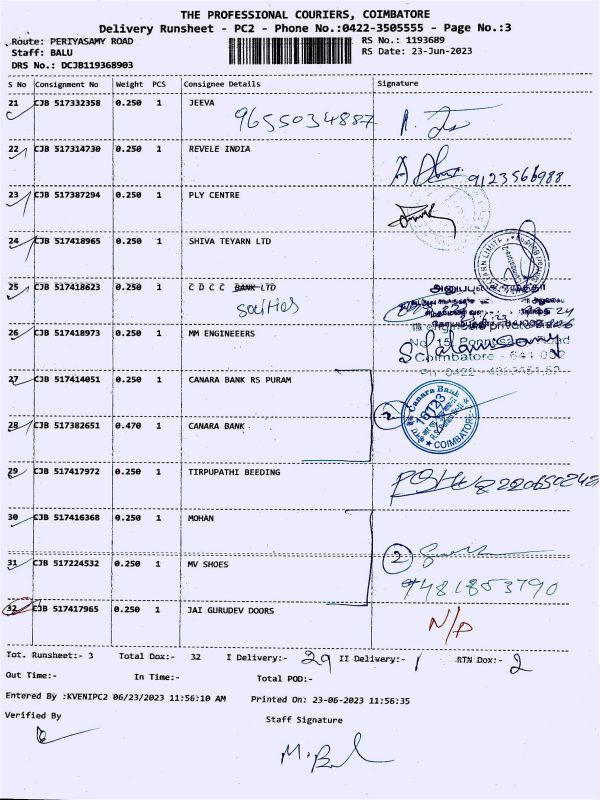 THE PROFESSIONAL COURIERS, COIMBATORE
Delivery Runsheet - PC2 - Phone No.:0422-3505555 - Page No.:3
Route: PERIYASAMY ROAD RS No.: 1193689
Staff: BALU RS Date: 23-Jun-2023
DRS No.: DCJB119368903
S No Consignment No Weight PCS Consignee Details Signature
21 CJB 517332358 0.250 1 JEEVA
9655034887
22 CJB 517314730 0.250 1 REVELE INDIA
9123566988
23 CJB 517387294 0.250 1 PLY CENTRE
24 CJB 517418965 0.250 1 SHIVA TEYARN LTD
25 CJB 517418623 0.250 1 C D C C BANK LTD
Socities
26 CJB 517418973 0.250 1 MM ENGINEEERS
Coimbatore - 641 002
27 CJB 517414051 0.250 1 CANARA BANK RS PURAM
Canara Bank
2
COIMBATORE
28 CJB 517382651 0.470 1 CANARA BANK
29 CJB 517417972 0.250 1 TIRPUPATHI BEEDING
30 CJB 517416368 0.250 1 MOHAN
2
31 CJB 517224532 0.250 1 MV SHOES
9481853790
32 CJB 517417965 0.250 1 JAI GURUDEV DOORS
N/P
Tot. Runsheet:- 3 Total Dox:- 32 I Delivery:- 29 II Delivery:- 1 RTN Dox:- 2
Out Time:- In Time:- Total POD:-
Entered By :KVENIPC2 06/23/2023 11:56:10 AM Printed On: 23-06-2023 11:56:35
Verified By Staff Signature